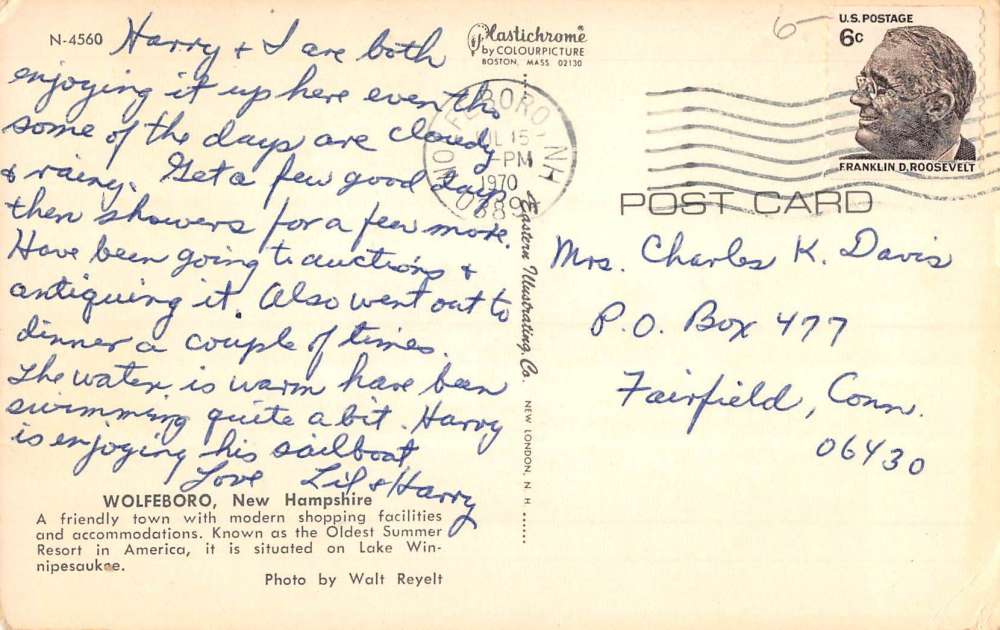 N-4560
Harry + I are both
enjoying it up here even tho
some of the days are cloudy
+ rainy. Get a few good days
then showers for a few more.
Have been going to auctions +
antiquing it. Also went out to
dinner a couple of times.
The water is warm have been
swimming quite a bit. Harry
is enjoying his sailboat
Love Lil + Harry
WOLFEBORO, New Hampshire
A friendly town with modern shopping facilities
and accommodations. Known as the Oldest Summer
Resort in America, it is situated on Lake Win-
nipesaukee.
Photo by Walt Reyelt
Plastichrome®
by COLOURPICTURE
BOSTON, MASS 02130
WOLFEBORO, NH
JUL 15
PM
1970
Eastern Illustrating Co. NEW LONDON, N. H.
6-
U.S. POSTAGE
6c
FRANKLIN D. ROOSEVELT
POST CARD
Mrs. Charles K. Davis
P.O. Box 477
Fairfield, Conn.
06430